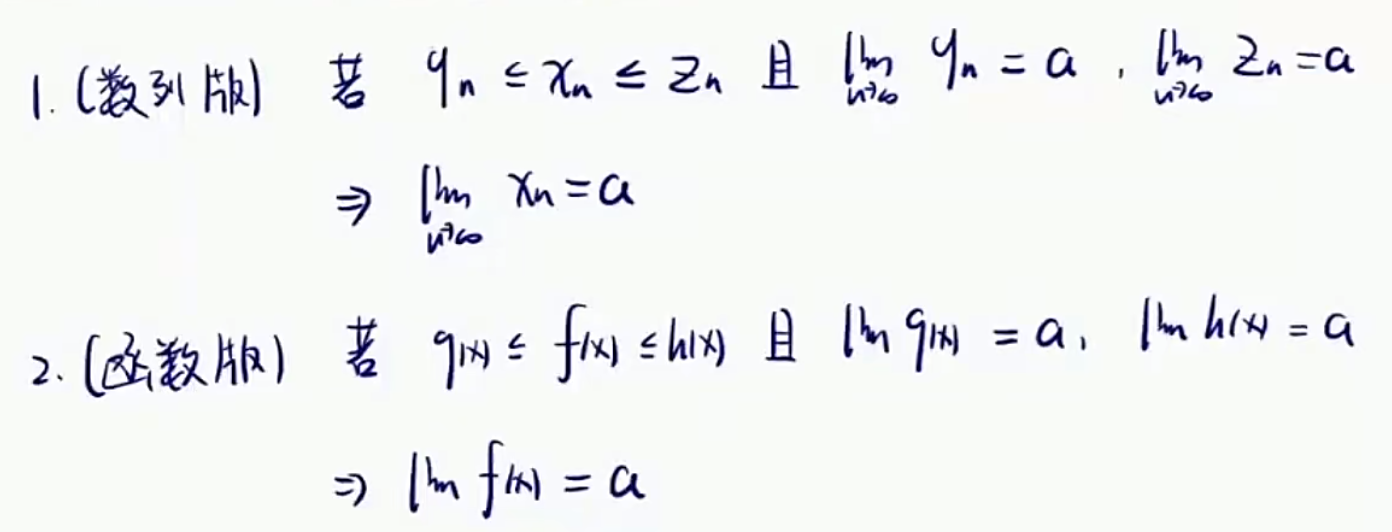 1. (数列版) 若 yₙ ≤ xₙ ≤ zₙ 且 lim_{n→∞} yₙ = a , lim_{n→∞} zₙ = a
⇒ lim_{n→∞} xₙ = a
2. (函数版) 若 g(x) ≤ f(x) ≤ h(x) 且 lim g(x) = a, lim h(x) = a
⇒ lim f(x) = a